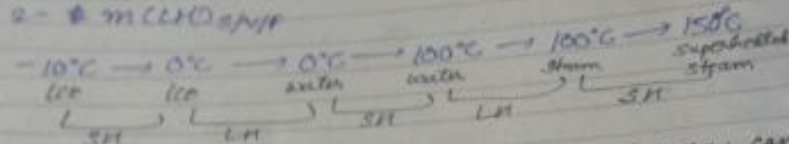 -10°C → 0°C → 0°C → 100°C → 100°C → 150°C
ice ice water water steam superheated
steam
SH LH SH LH SH